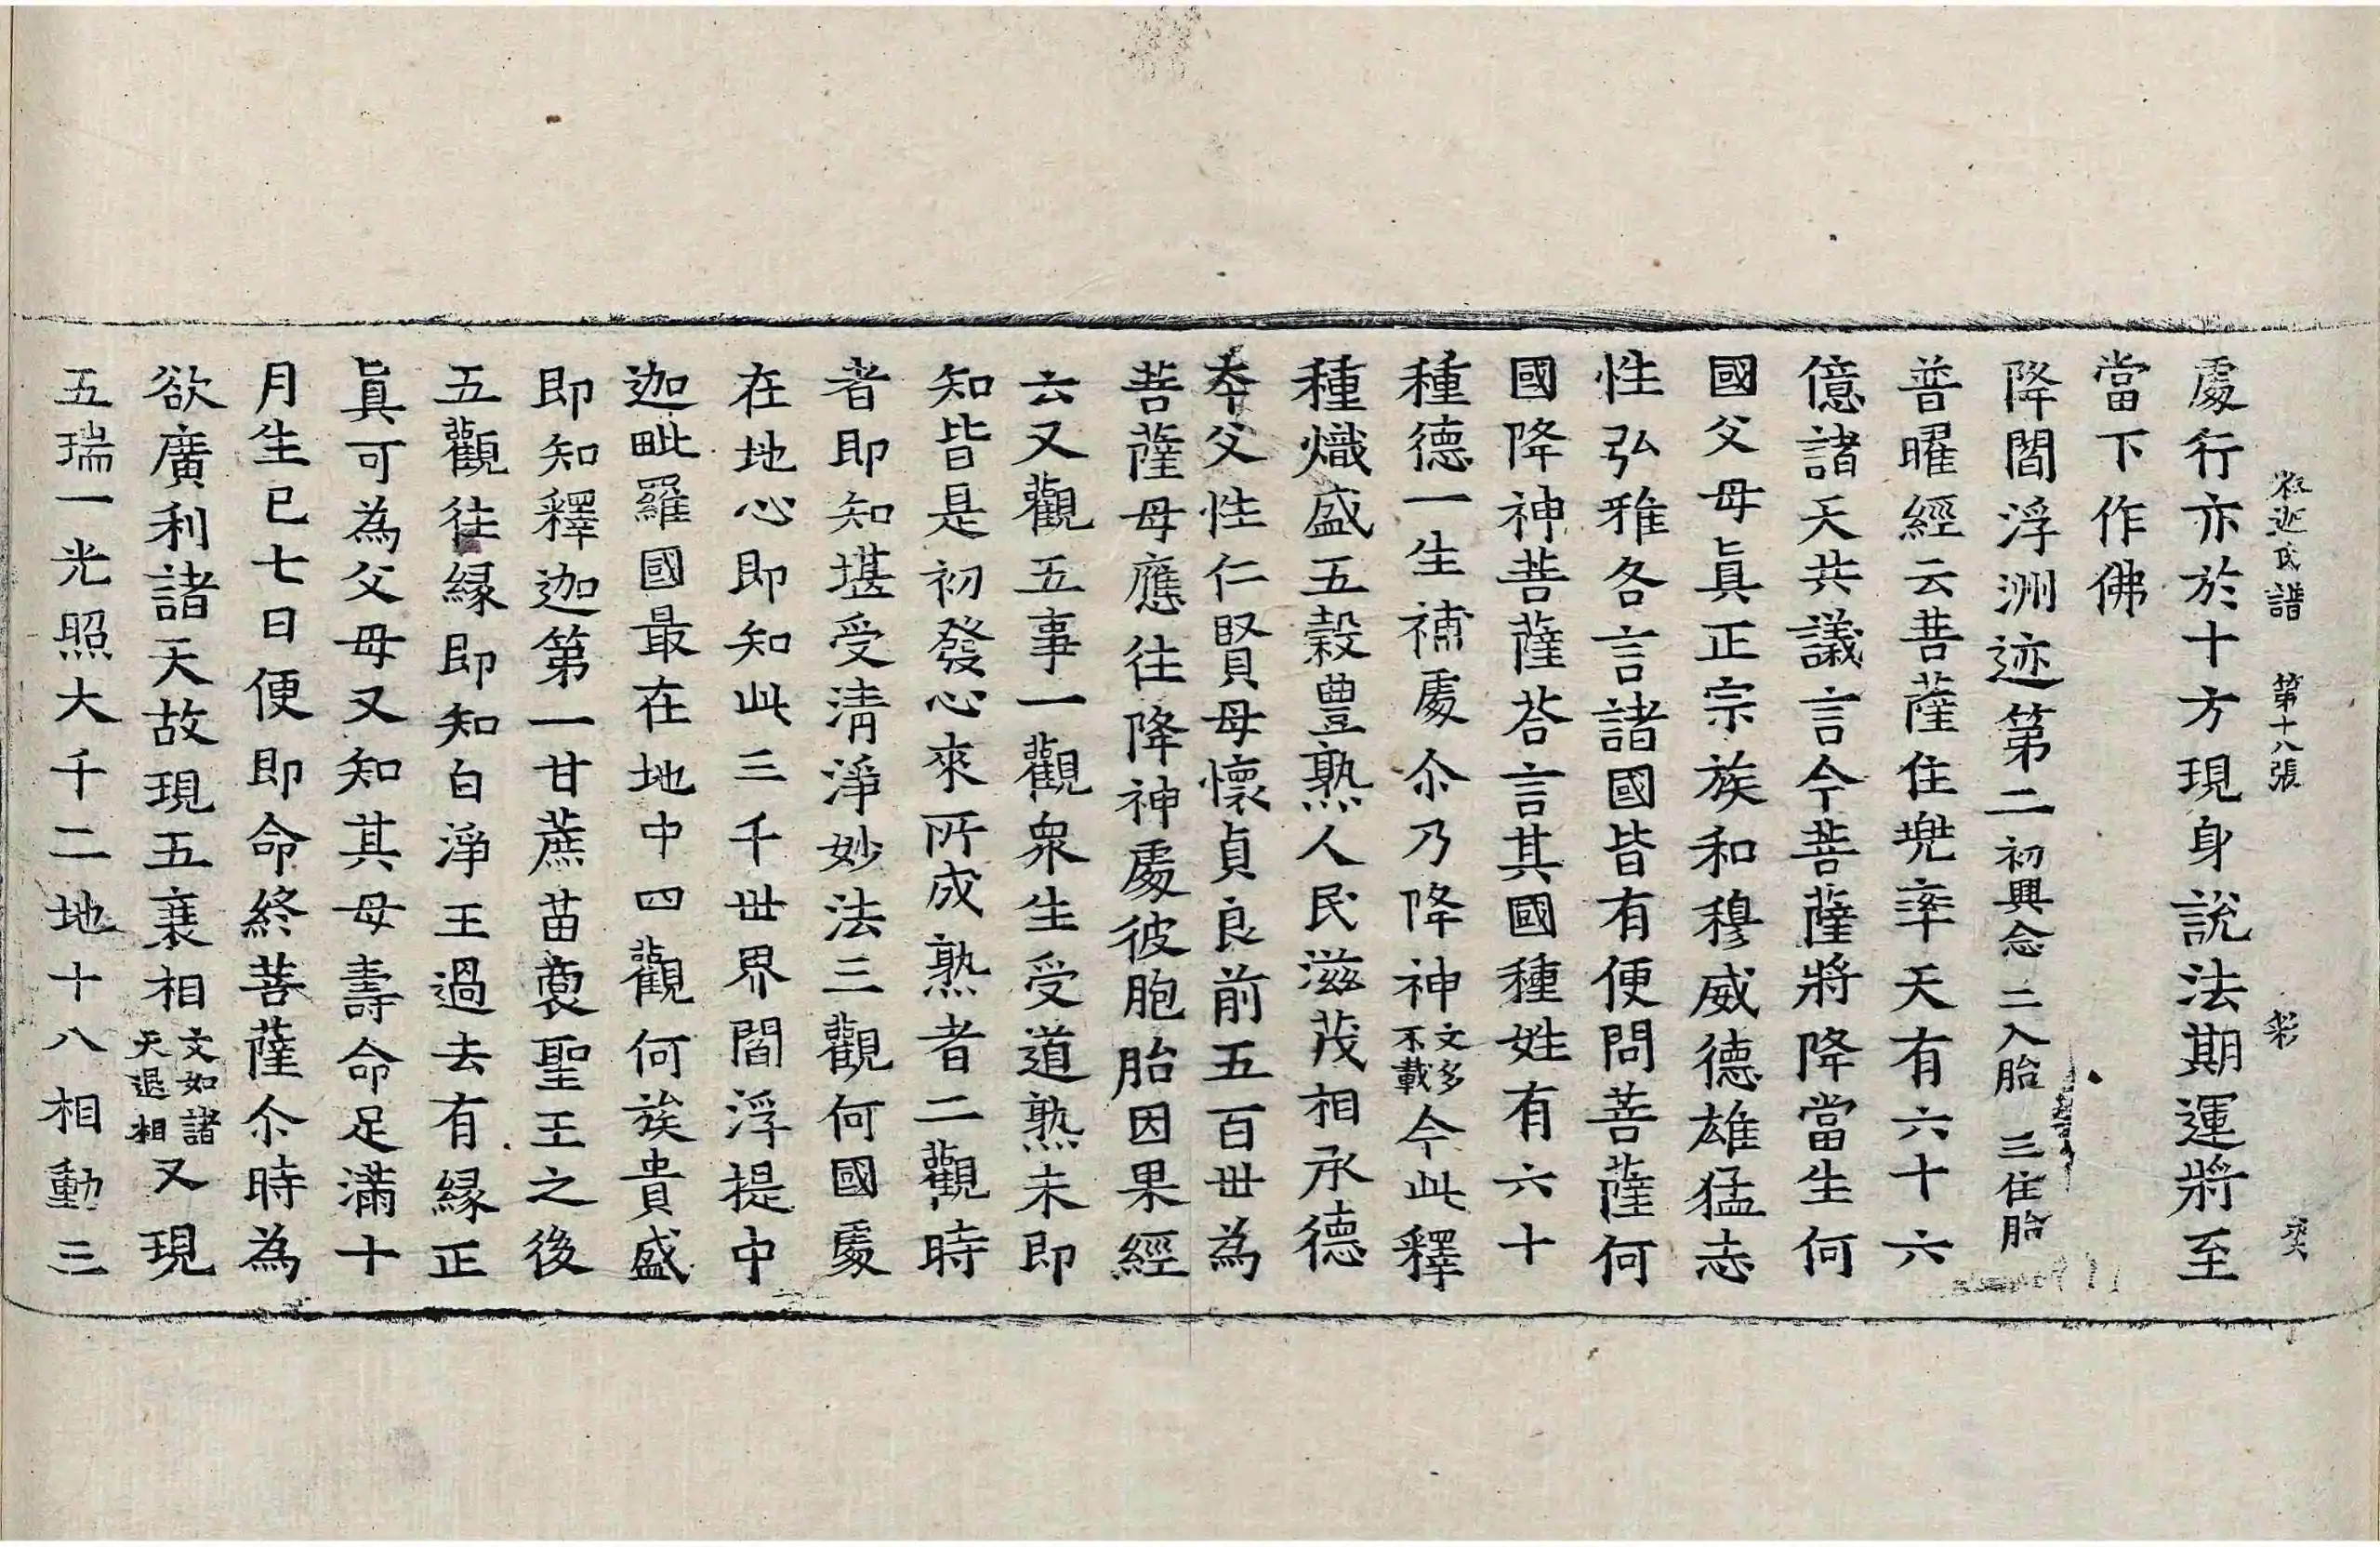 釋迦氏譜 第十八張 彩
處行亦於十方現身說法期運將至
當下作佛
降閻浮洲迹第二 初興念 二入胎 三住胎
普曜經云菩薩住兜率天有六十六
億諸天共議言今菩薩將降當生何
國父母眞正宗族和穆威德雄猛志
性弘雅各言諸國皆有便問菩薩何
國降神菩薩荅言其國種姓有六十
種德一生補處尒乃降神文多不載今此釋
種熾盛五穀豊熟人民滋茂相承德
夲父性仁賢母懷貞良前五百世為
菩薩母應往降神處彼胞胎因果經
云又觀五事一觀衆生受道熟未即
知皆是初發心來所成熟者二觀時
者即知堪受清淨妙法三觀何國處
在地心即知此三千世界閻浮提中
迦毗羅國最在地中四觀何族貴盛
即知釋迦第一甘蔗苗裔聖王之後
五觀往緣即知白淨王過去有緣正
眞可為父母又知其母壽命足滿十
月生已七日便即命終菩薩尒時為
欲廣利諸天故現五衰相文如諸天退相又現
五瑞一光照大千二地十八相動三